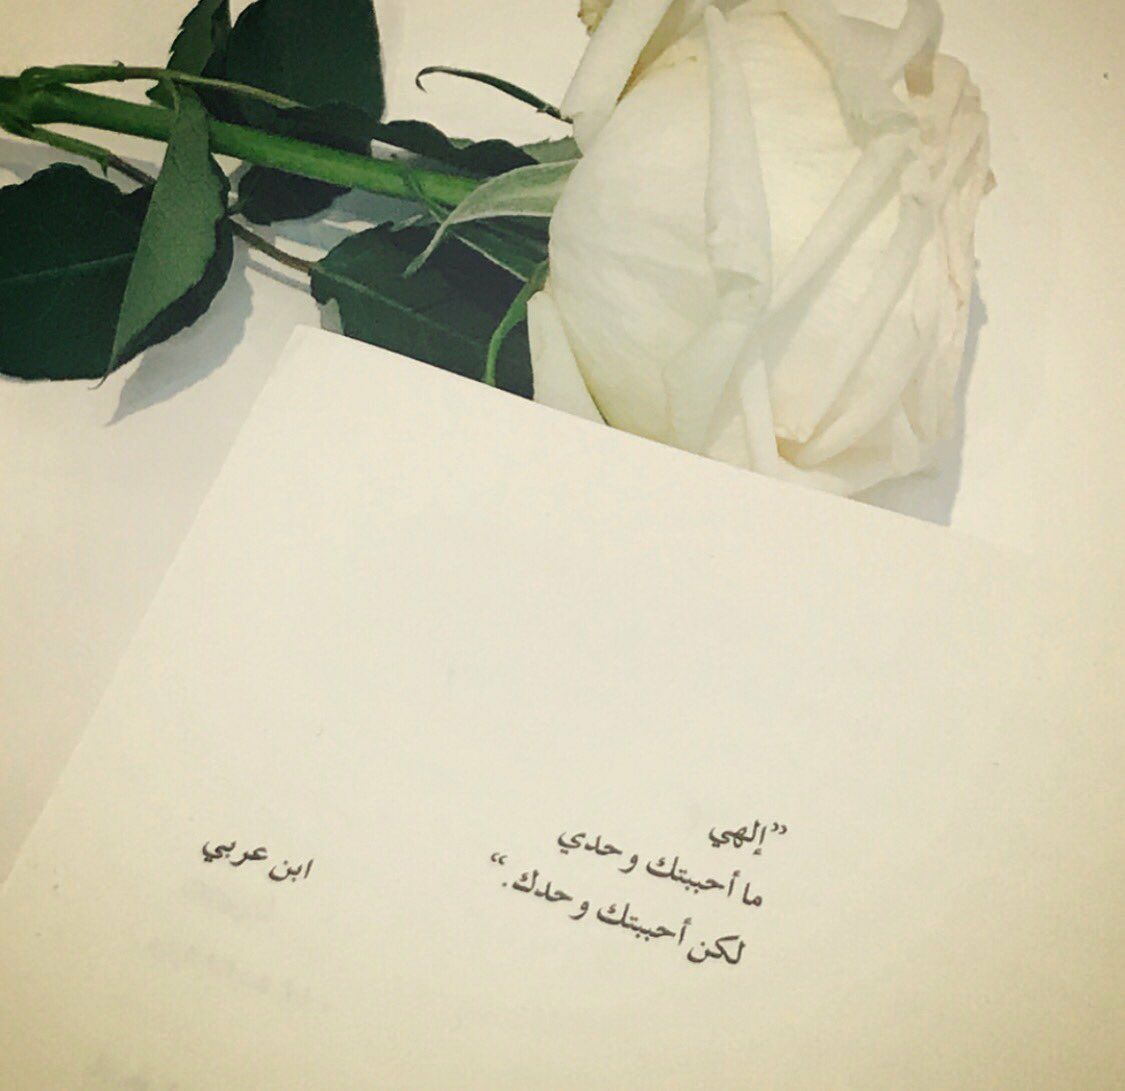 ”إلهي
ما أحببتك وحدي
لكن أحببتك وحدك.“
ابن عربي